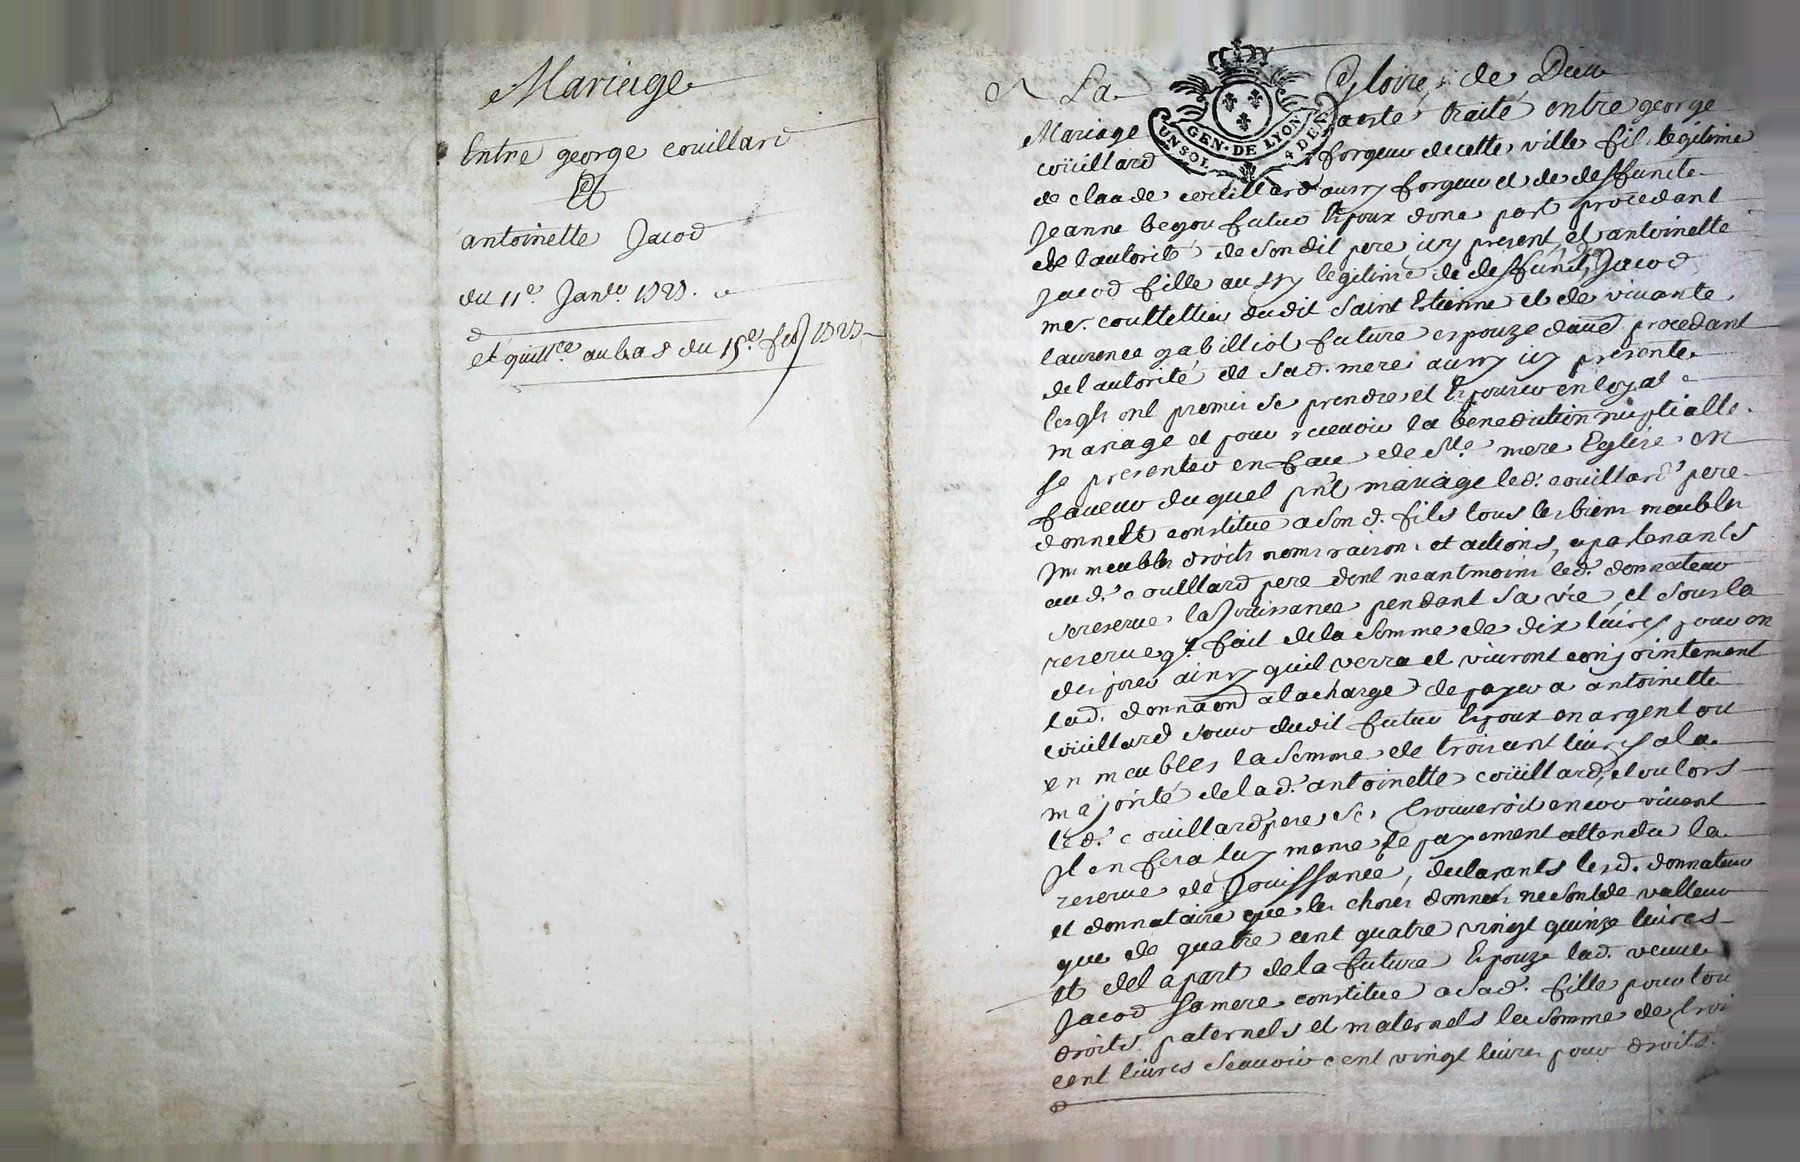 Mariage
Entre george couillard
Et
antoinette Jacod
du 11e. Janer. 1729.
et quittce au bas du 15e. feb
A La Gloire de Dieu
GEN. DE LYON
UN SOL 4 DEN
Mariage a esté traité entre george
coüillard forgeur de cette ville fil legitime
de claude coüillard aussy forgeur et de deffunte
Jeanne begou futur Epoux d'one part procedant
de l'autorité de son dit pere icy present, et antoinette
Jacod fille aussy legitime de deffunt Jacod
me. couttellier dudit Saint Etienne et de vivante
laurence gabilliot future espouze d'aue. procedant
de l'autorité de sad. mere aussy icy presente
lesqls ont promis se prendre et Epouser en loyal
mariage et pour recevoir la benediction nuptialle
se presenter en face de Ste. mere Eglise en
faveur duquel pnt mariage led. couillard pere
donne et constitue a son d. fils tous les biens meubles
Immeubles droits noms raisons et actions, apartenants
aud. couillard pere dont neantmoins led. donnateur
se reserve la Jouissance pendant sa vie, et sous la
reserve ql. fait de la somme de dix livres pour en
disposer ainsy quil verra et vivront conjointement
lad. donnaon a la charge de payer a antoinette
coüillard soeur dudit futur Epoux en argent ou
en meubles la somme de trois cent livres a la
majorité de la d. antoinette coüillard, et ou lors
led. couillard pere se trouveroit encor vivant
Il en fera luy meme le payement attendu la
reserve de Jouissance, declarants lesd. donnateur
et donnataire que les choses données ne sont de valleur
que de quatre cent quatre vingt quinze livres
et de la part de la future Epouze lad. veuve
Jacod sa mere constitue a sad. fille pour tou
droits paternels et maternels la somme de troi
cent livres scavoir cent vingt livres pour droits